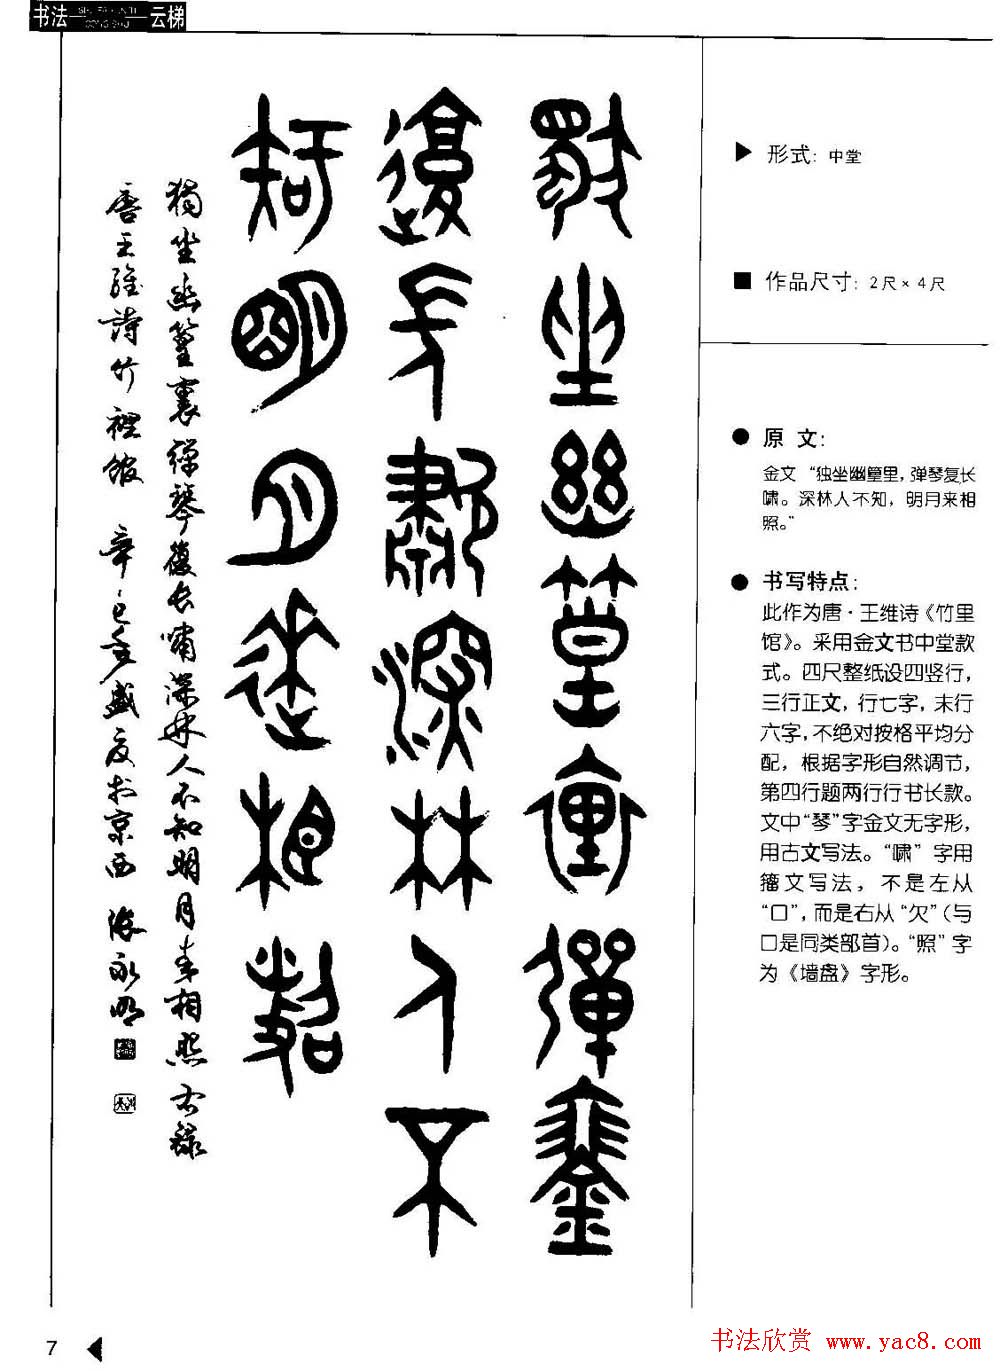 书法 云梯
形式：中堂
作品尺寸：2尺×4尺
原 文：
金文 “独坐幽篁里，弹琴复长
啸。深林人不知，明月来相
照。”
书写特点：
此作为唐·王维诗《竹里
馆》。采用金文书中堂款
式。四尺整纸设四竖行，
三行正文，行七字，末行
六字，不绝对按格平均分
配，根据字形自然调节，
第四行题两行行书长款。
文中“琴”字金文无字形，
用古文写法。“啸” 字用
籀文写法，不是左从
“口”，而是右从“欠”（与
口是同类部首）。“照” 字
为《墙盘》字形。
獨坐幽篁裏彈琴
復長嘯深林人不
知明月來相照
獨坐幽篁裏彈琴復长嘯深林人不知明月来相照 右録
唐王維詩竹裡館 辛巳年盛夏於京西 张永明
7
书法欣赏 www.yac8.com